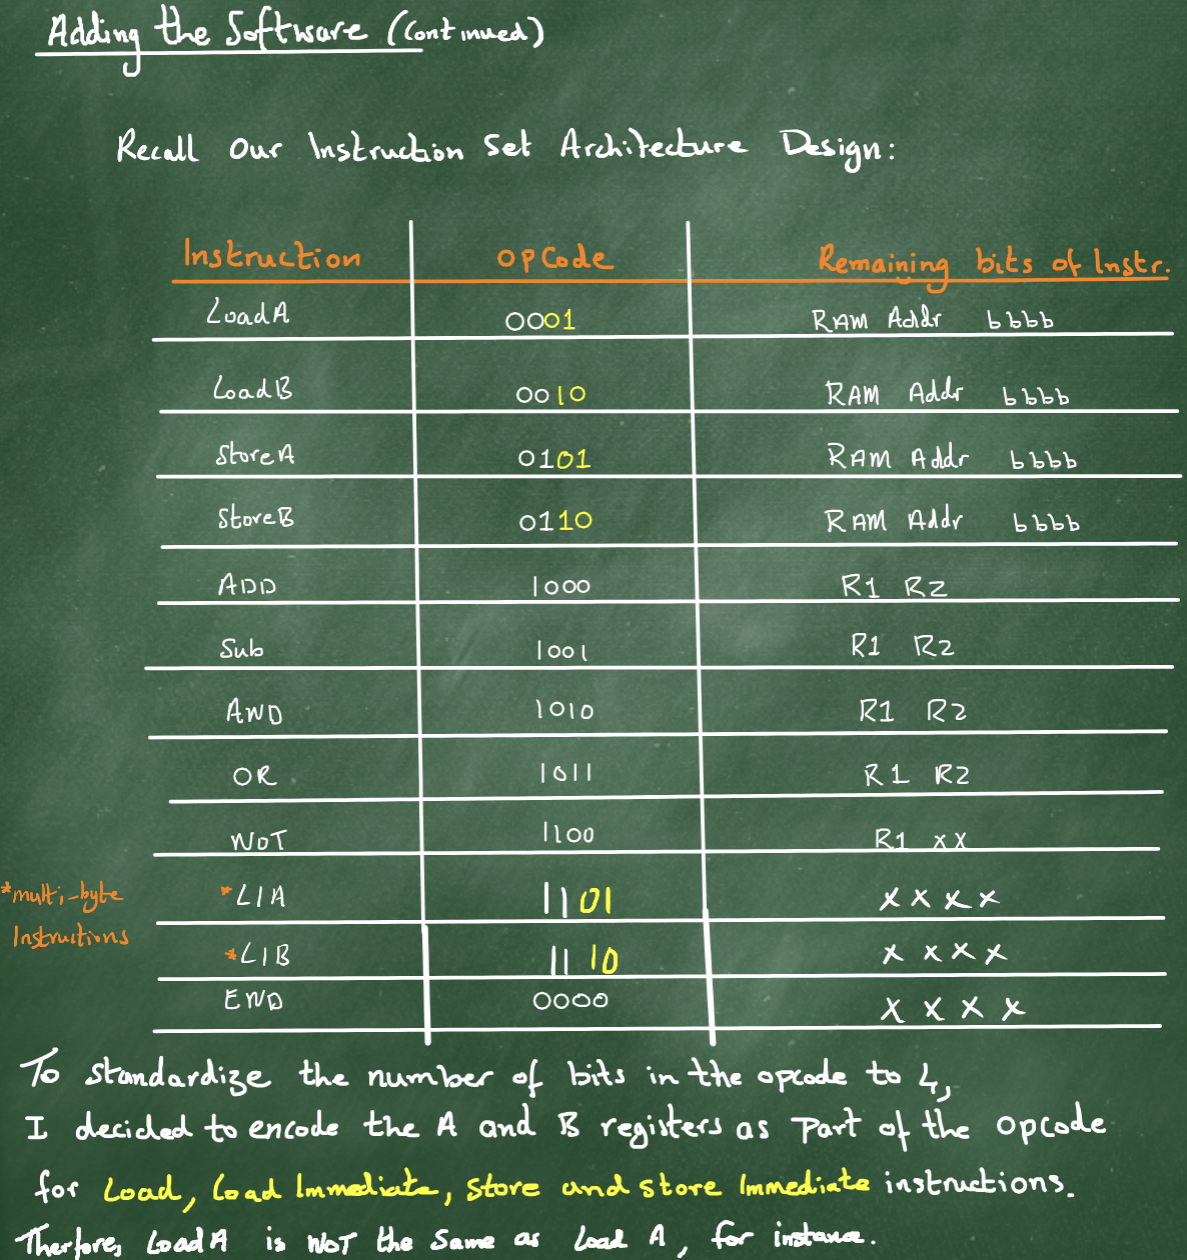 Adding the Software (Continued)
Recall Our Instruction Set Architecture Design:
Instruction OpCode Remaining bits of Instr.
LoadA 0001 RAM Addr bbbb
LoadB 0010 RAM Addr bbbb
StoreA 0101 RAM Addr bbbb
StoreB 0110 RAM Addr bbbb
ADD 1000 R1 R2
Sub 1001 R1 R2
AND 1010 R1 R2
OR 1011 R1 R2
NOT 1100 R1 xx
*multi-byte *LIA 1101 xxxx
Instructions *LIB 1110 xxxx
END 0000 xxxx
To standardize the number of bits in the opcode to 4,
I decided to encode the A and B registers as part of the opcode
for Load, Load Immediate, Store and store Immediate instructions.
Therfore, LoadA is NOT the same as Load A, for instance.